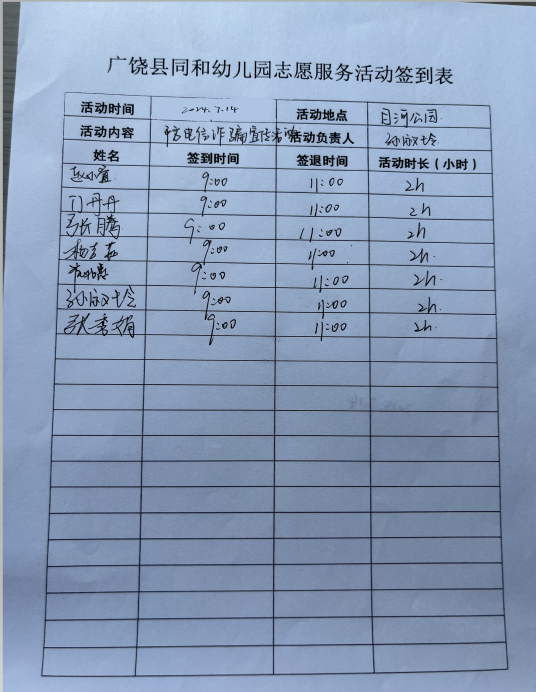 广饶县同和幼儿园志愿服务活动签到表
活动时间 2024.7.14 活动地点 月河公园
活动内容 电信诈骗宣传活动 活动负责人
姓名 签到时间 签退时间 活动时长（小时）
9:00 11:00 2h
门丹丹 9:00 11:00 2h
张腾 9:00 11:00 2h
9:00 11:00 2h
9:00 11:00 2h
9:00 11:00 2h
张秀娟 9:00 11:00 2h